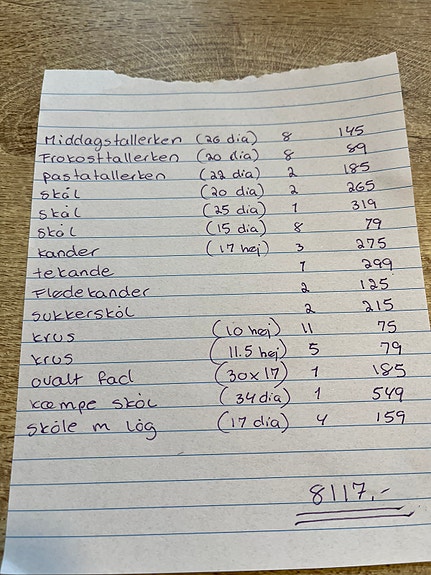 Middagstallerken (26 dia) 8 145
Frokosttallerken (20 dia) 8 89
pastatallerken (22 dia) 2 185
skål (20 dia) 2 265
skål (25 dia) 1 319
skål (15 dia) 8 79
kander (17 høj) 3 275
tekande 1 299
Flødekander 2 125
sukkerskål 2 215
krus (10 høj) 11 75
krus (11.5 høj) 5 79
ovalt fad (30x17) 1 185
kæmpe skål (34 dia) 1 549
skåle m låg (17 dia) 4 159
8117,-